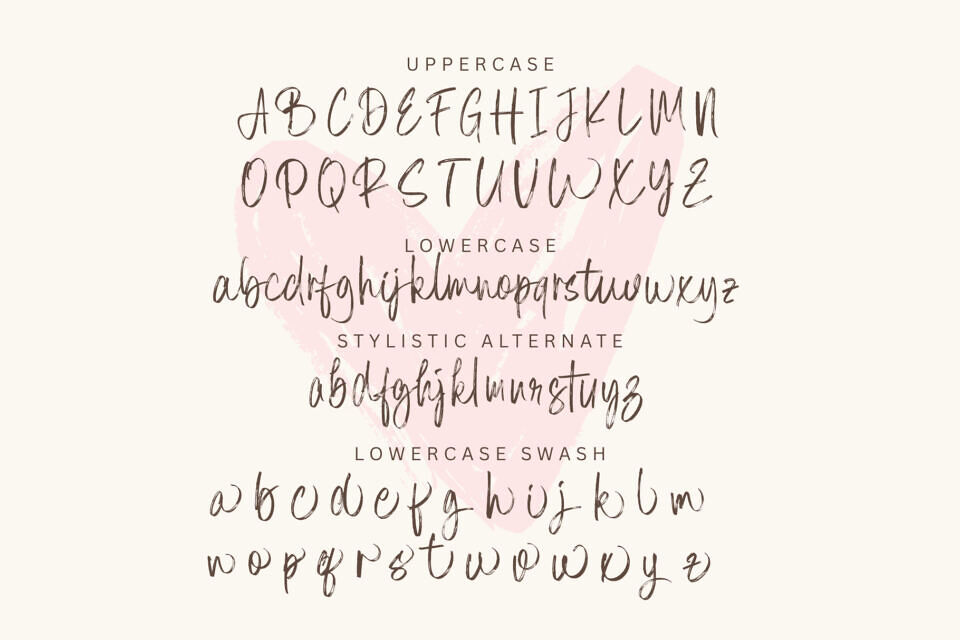 UPPERCASE
ABCDEFGHIJKLMN
OPQRSTUVWXYZ
LOWERCASE
abcdrfghijklmnopqrstuvwxyz
STYLISTIC ALTERNATE
abdfghjklmnrstuyz
LOWERCASE SWASH
a b c d e f g h i j k l m
n o p q r s t u v w x y z